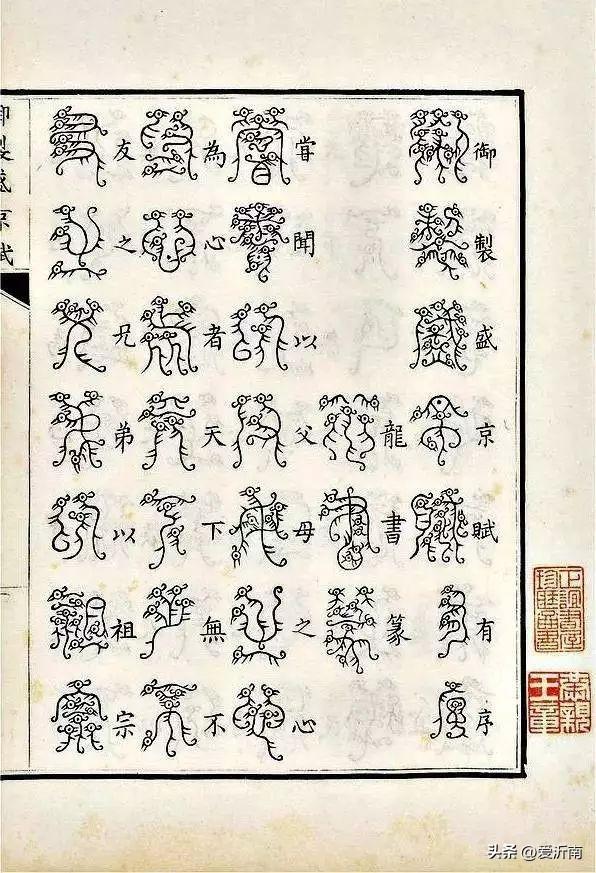 御製盛京賦有序
龍書篆
嘗聞以父母之心
為心者天下無不
友之兄弟以祖宗
御製盛京賦
头条 @爱沂南